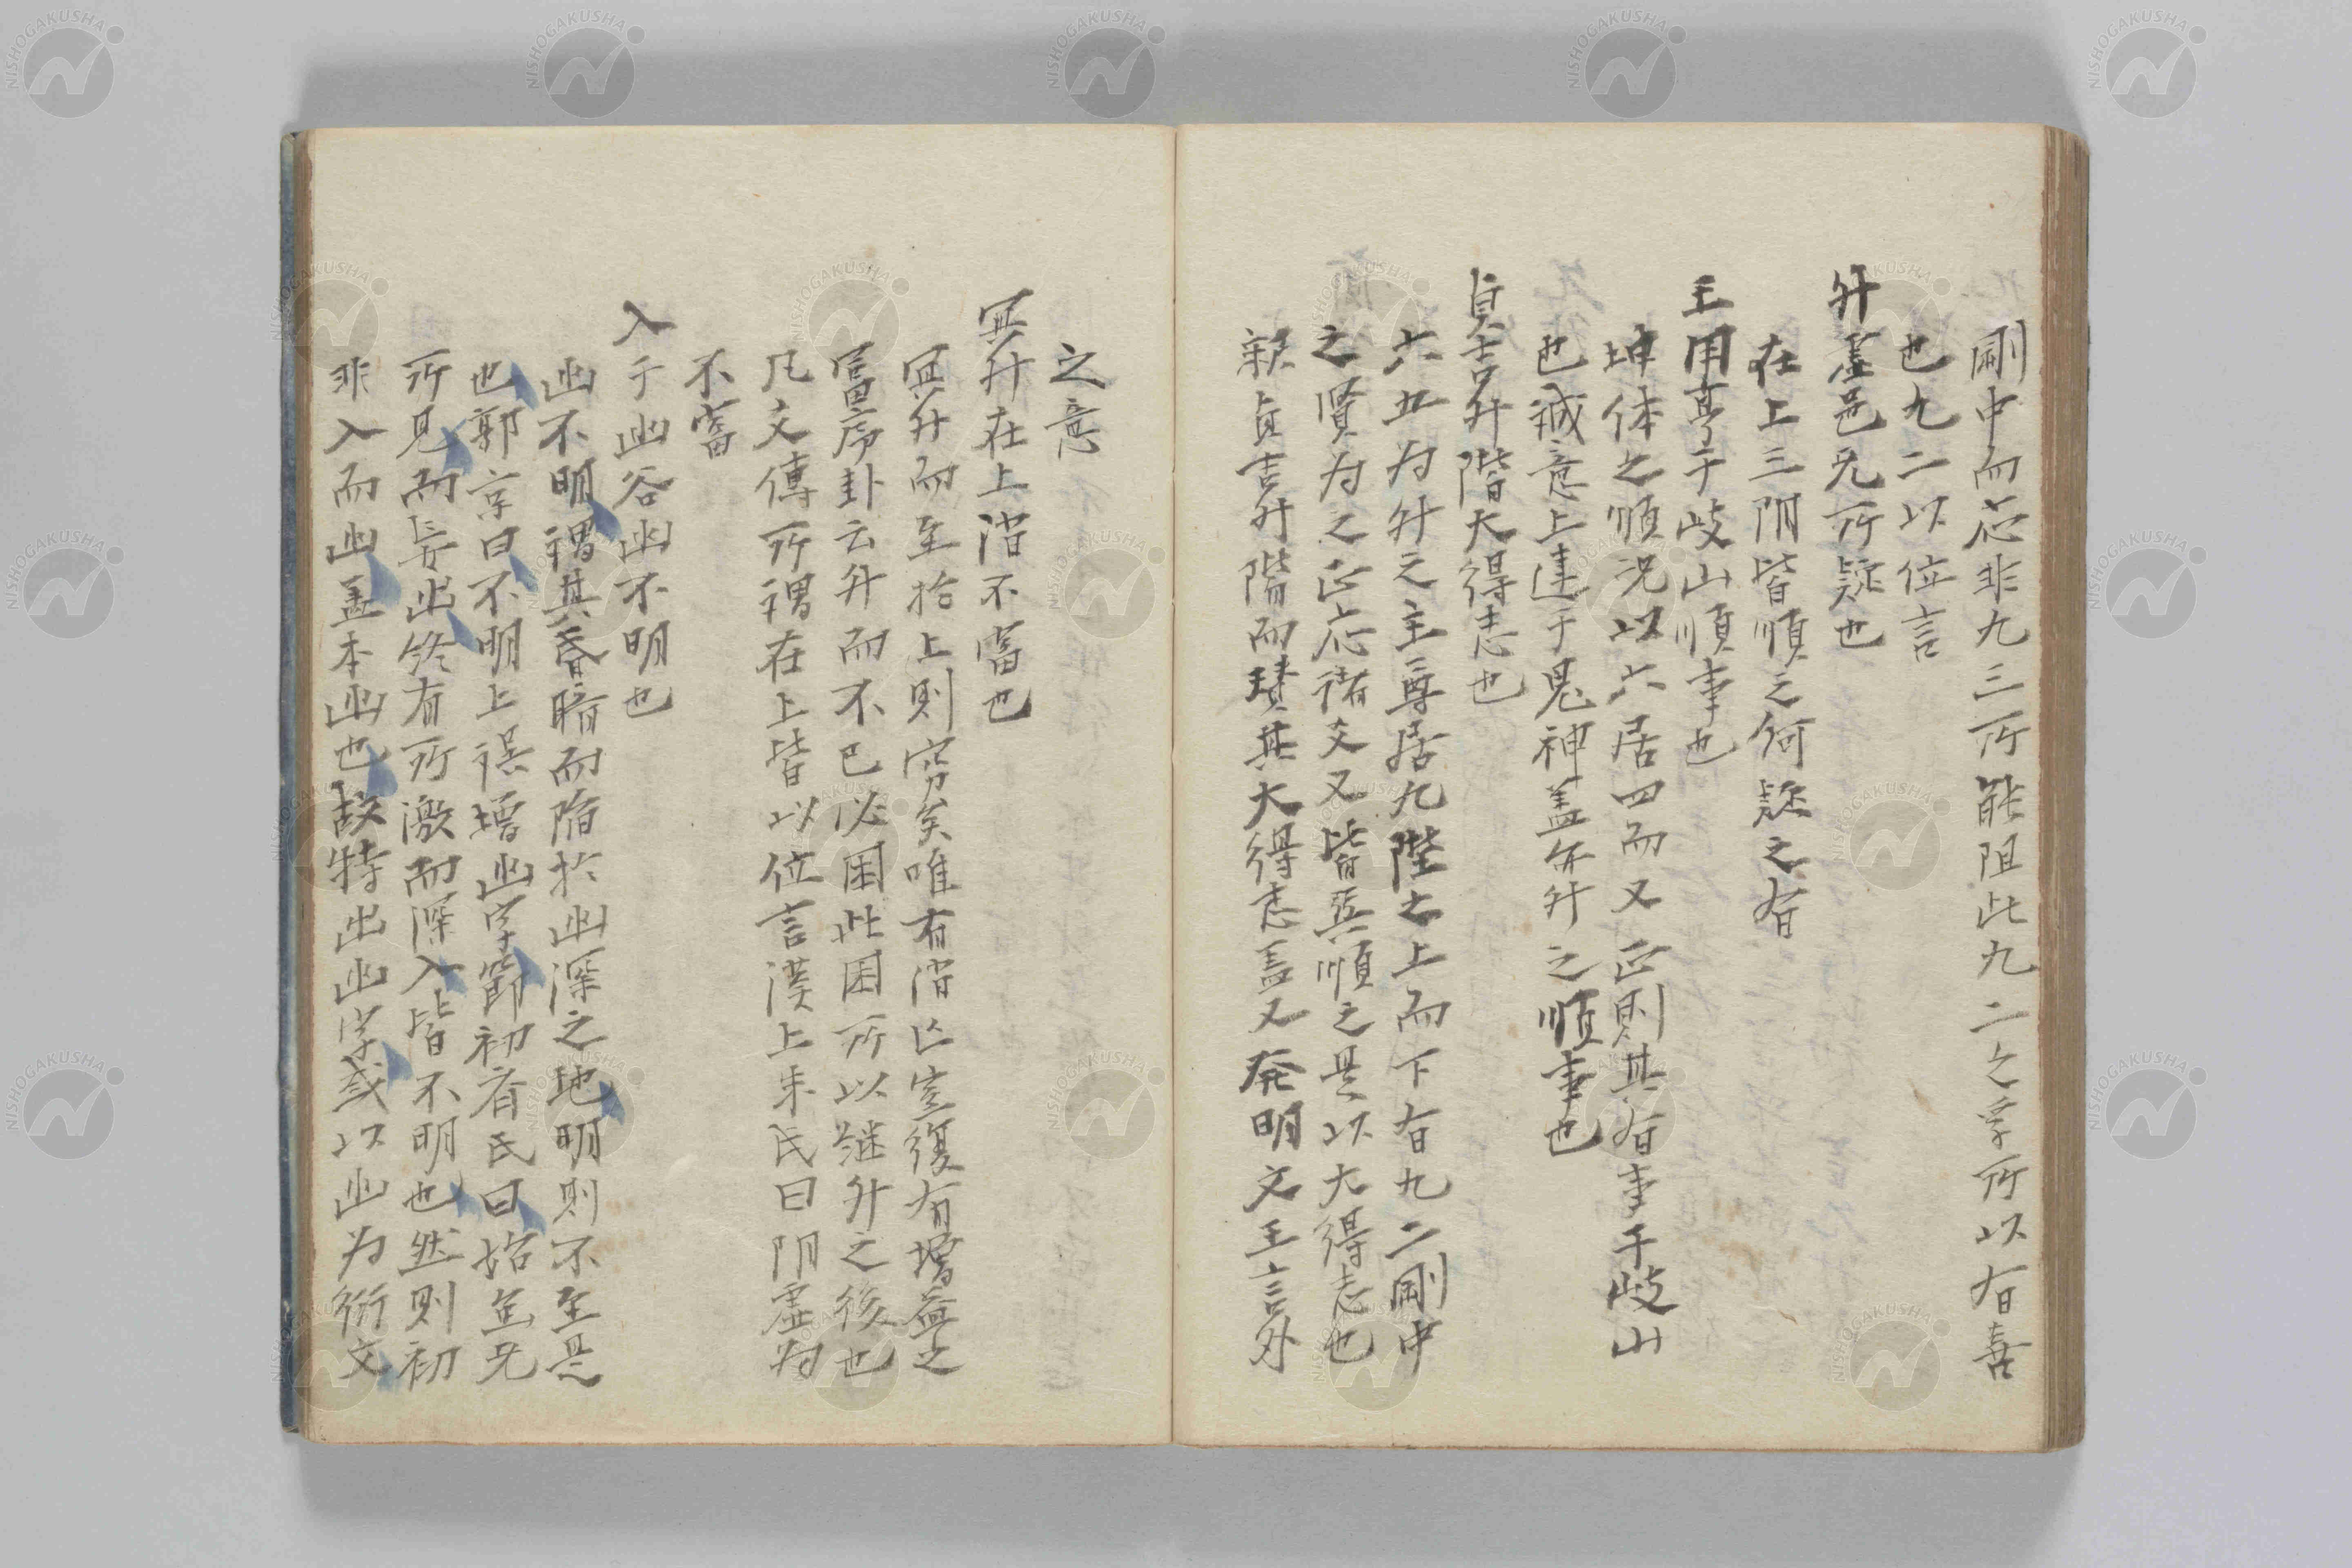 剛中而応非九三所能阻此九二之孚所以有喜
也九二以位言
升虛邑无所疑也
在上三阴皆順之何疑之有
王用亨于岐山順事也
坤体之順況以六居四而又正則其有事于岐山
也誠意上達于鬼神盖亦升之順事也
貞吉升階大得志也
六五为升之主尊居九陛之上而下有九二剛中
之賢为之正応諸爻又皆巽順之是以大得志也
释貞吉升階而賛其大得志盖又発明文王言外
之意
冥升在上消不富也
冥升而至於上則穷矣唯有消亡岂復有增益之
富序卦云升而不已必困此困所以継升之後也
凡爻傳所謂在上皆以位言漢上朱氏曰阴虛为
不富
入于幽谷幽不明也
幽不明謂其昏暗而陷於幽深之地明則不至是
也郭京曰不明上誤增幽字節初齊氏曰始焉无
所見而妄出終有所激而深入皆不明也然則初
非入而幽盖本幽也故特出幽字或以幽为衍文